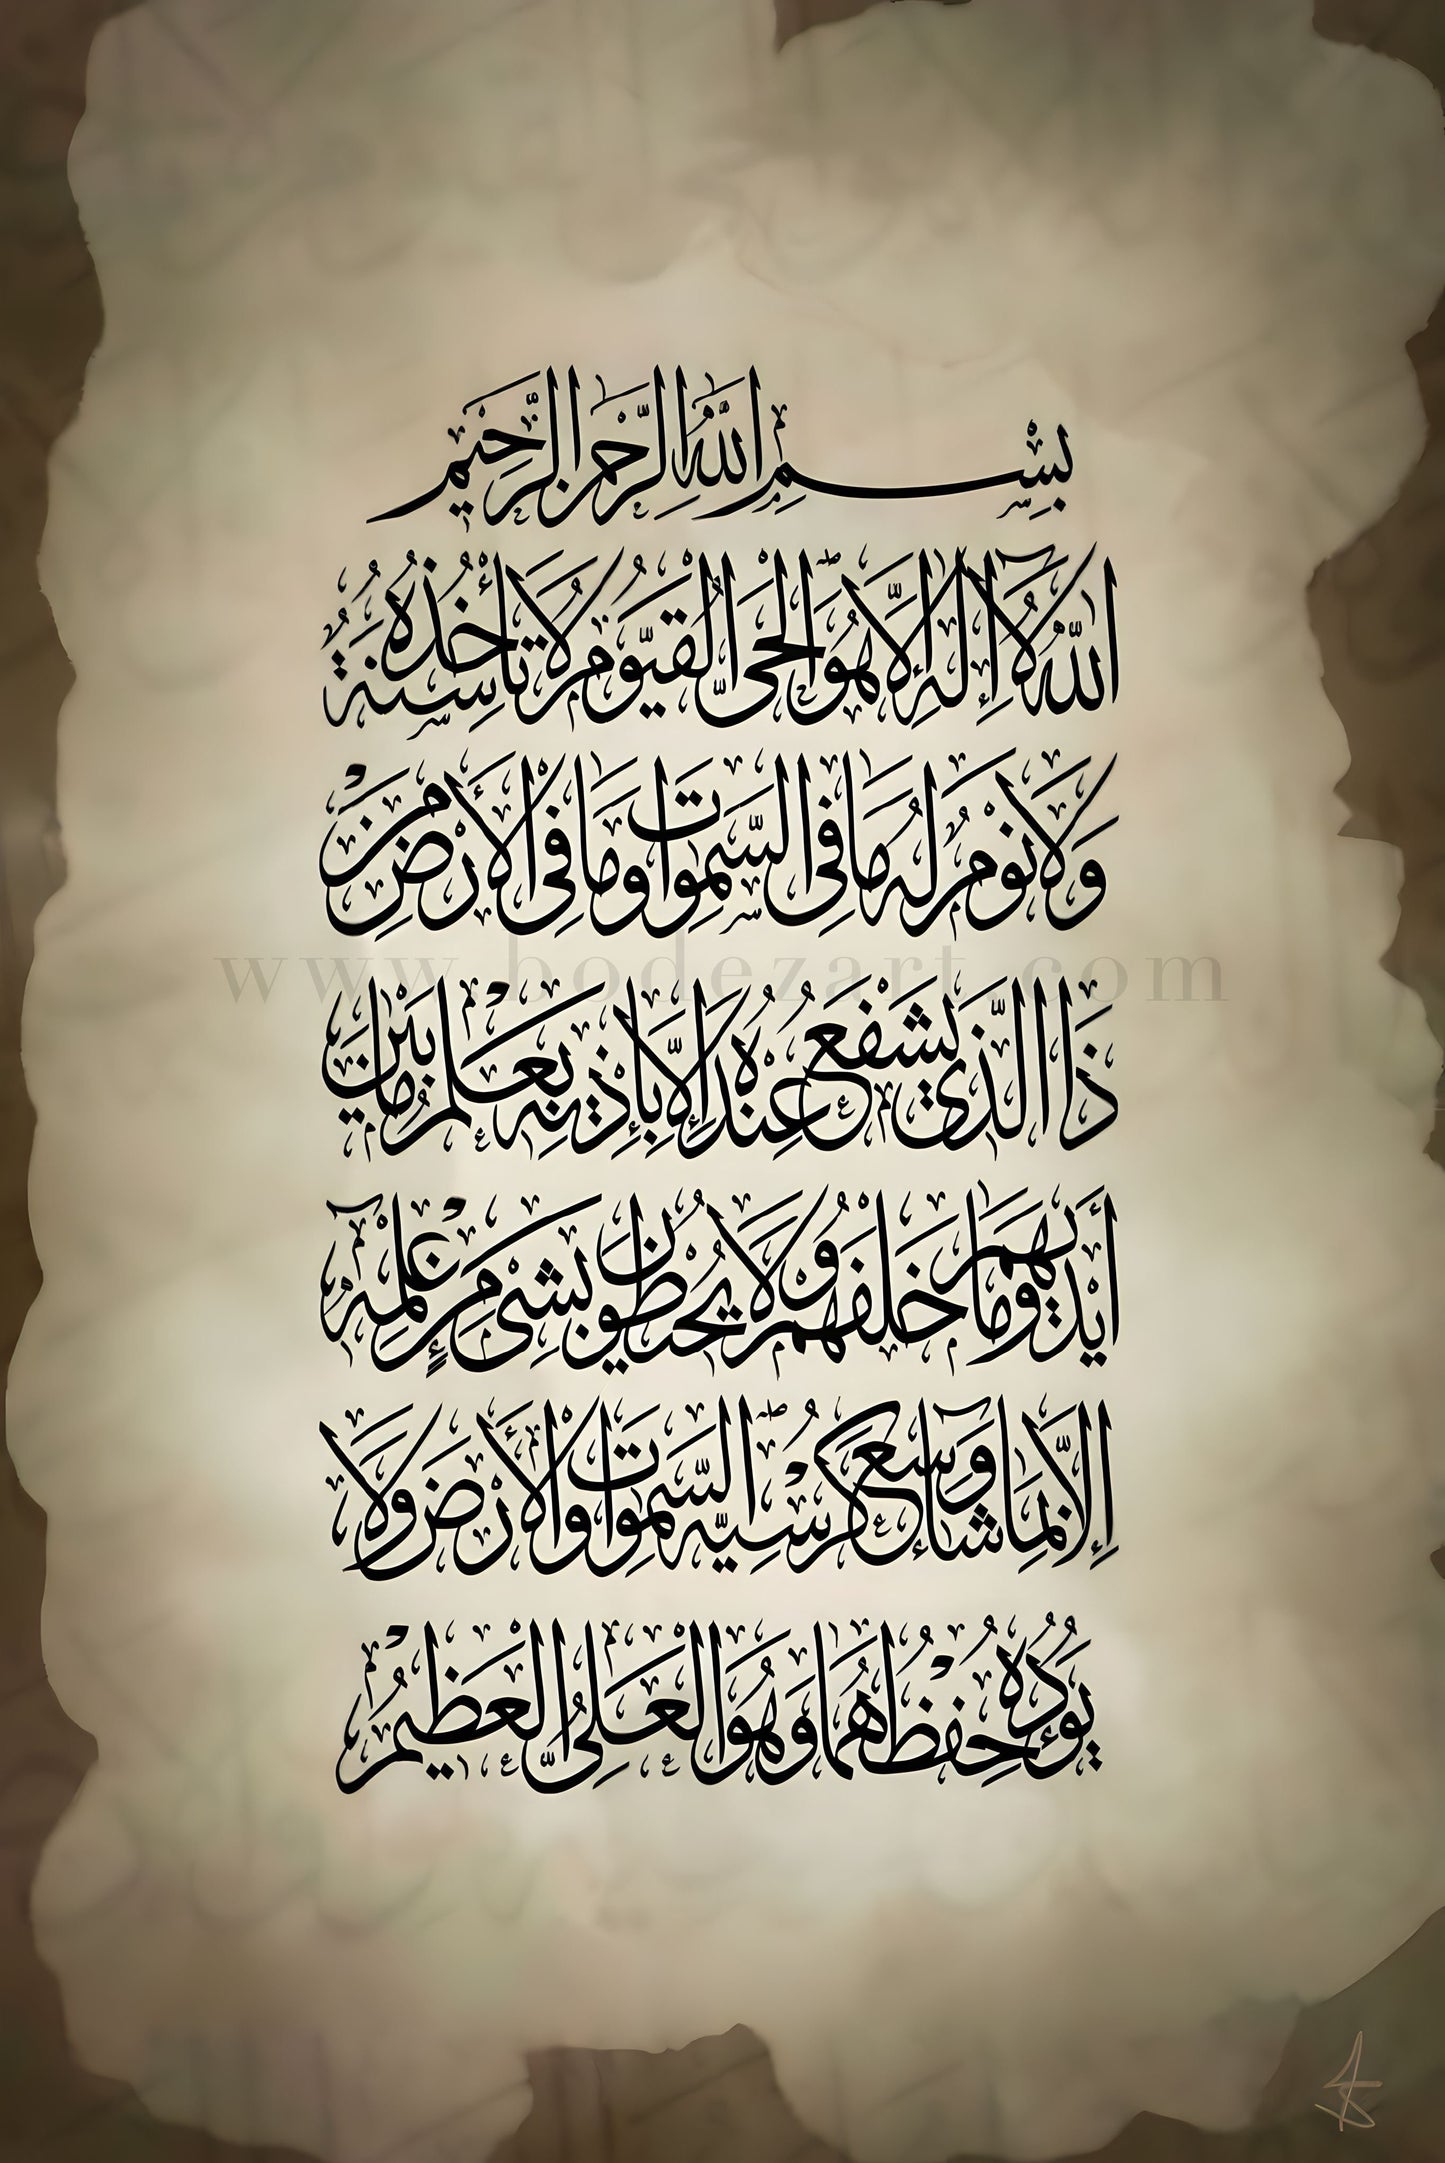 بِسْمِ اللَّهِ الرَّحْمٰنِ الرَّحِيمِ
اللَّهُ لَا إِلَٰهَ إِلَّا هُوَ الْحَيُّ الْقَيُّومُ لَا تَأْخُذُهُ سِنَةٌ
وَلَا نَوْمٌ لَهُ مَا فِي السَّمٰوَاتِ وَمَا فِي الْأَرْضِ مَنْ
ذَا الَّذِي يَشْفَعُ عِنْدَهُ إِلَّا بِإِذْنِهِ يَعْلَمُ مَا بَيْنَ
www.bodezart.com
أَيْدِيهِمْ وَمَا خَلْفَهُمْ وَلَا يُحِيطُونَ بِشَيْءٍ مِنْ عِلْمِهِ
إِلَّا بِمَا شَاءَ وَسِعَ كُرْسِيُّهُ السَّمٰوَاتِ وَالْأَرْضَ وَلَا
يَؤُدُهُ حِفْظُهُمَا وَهُوَ الْعَلِيُّ الْعَظِيمُ